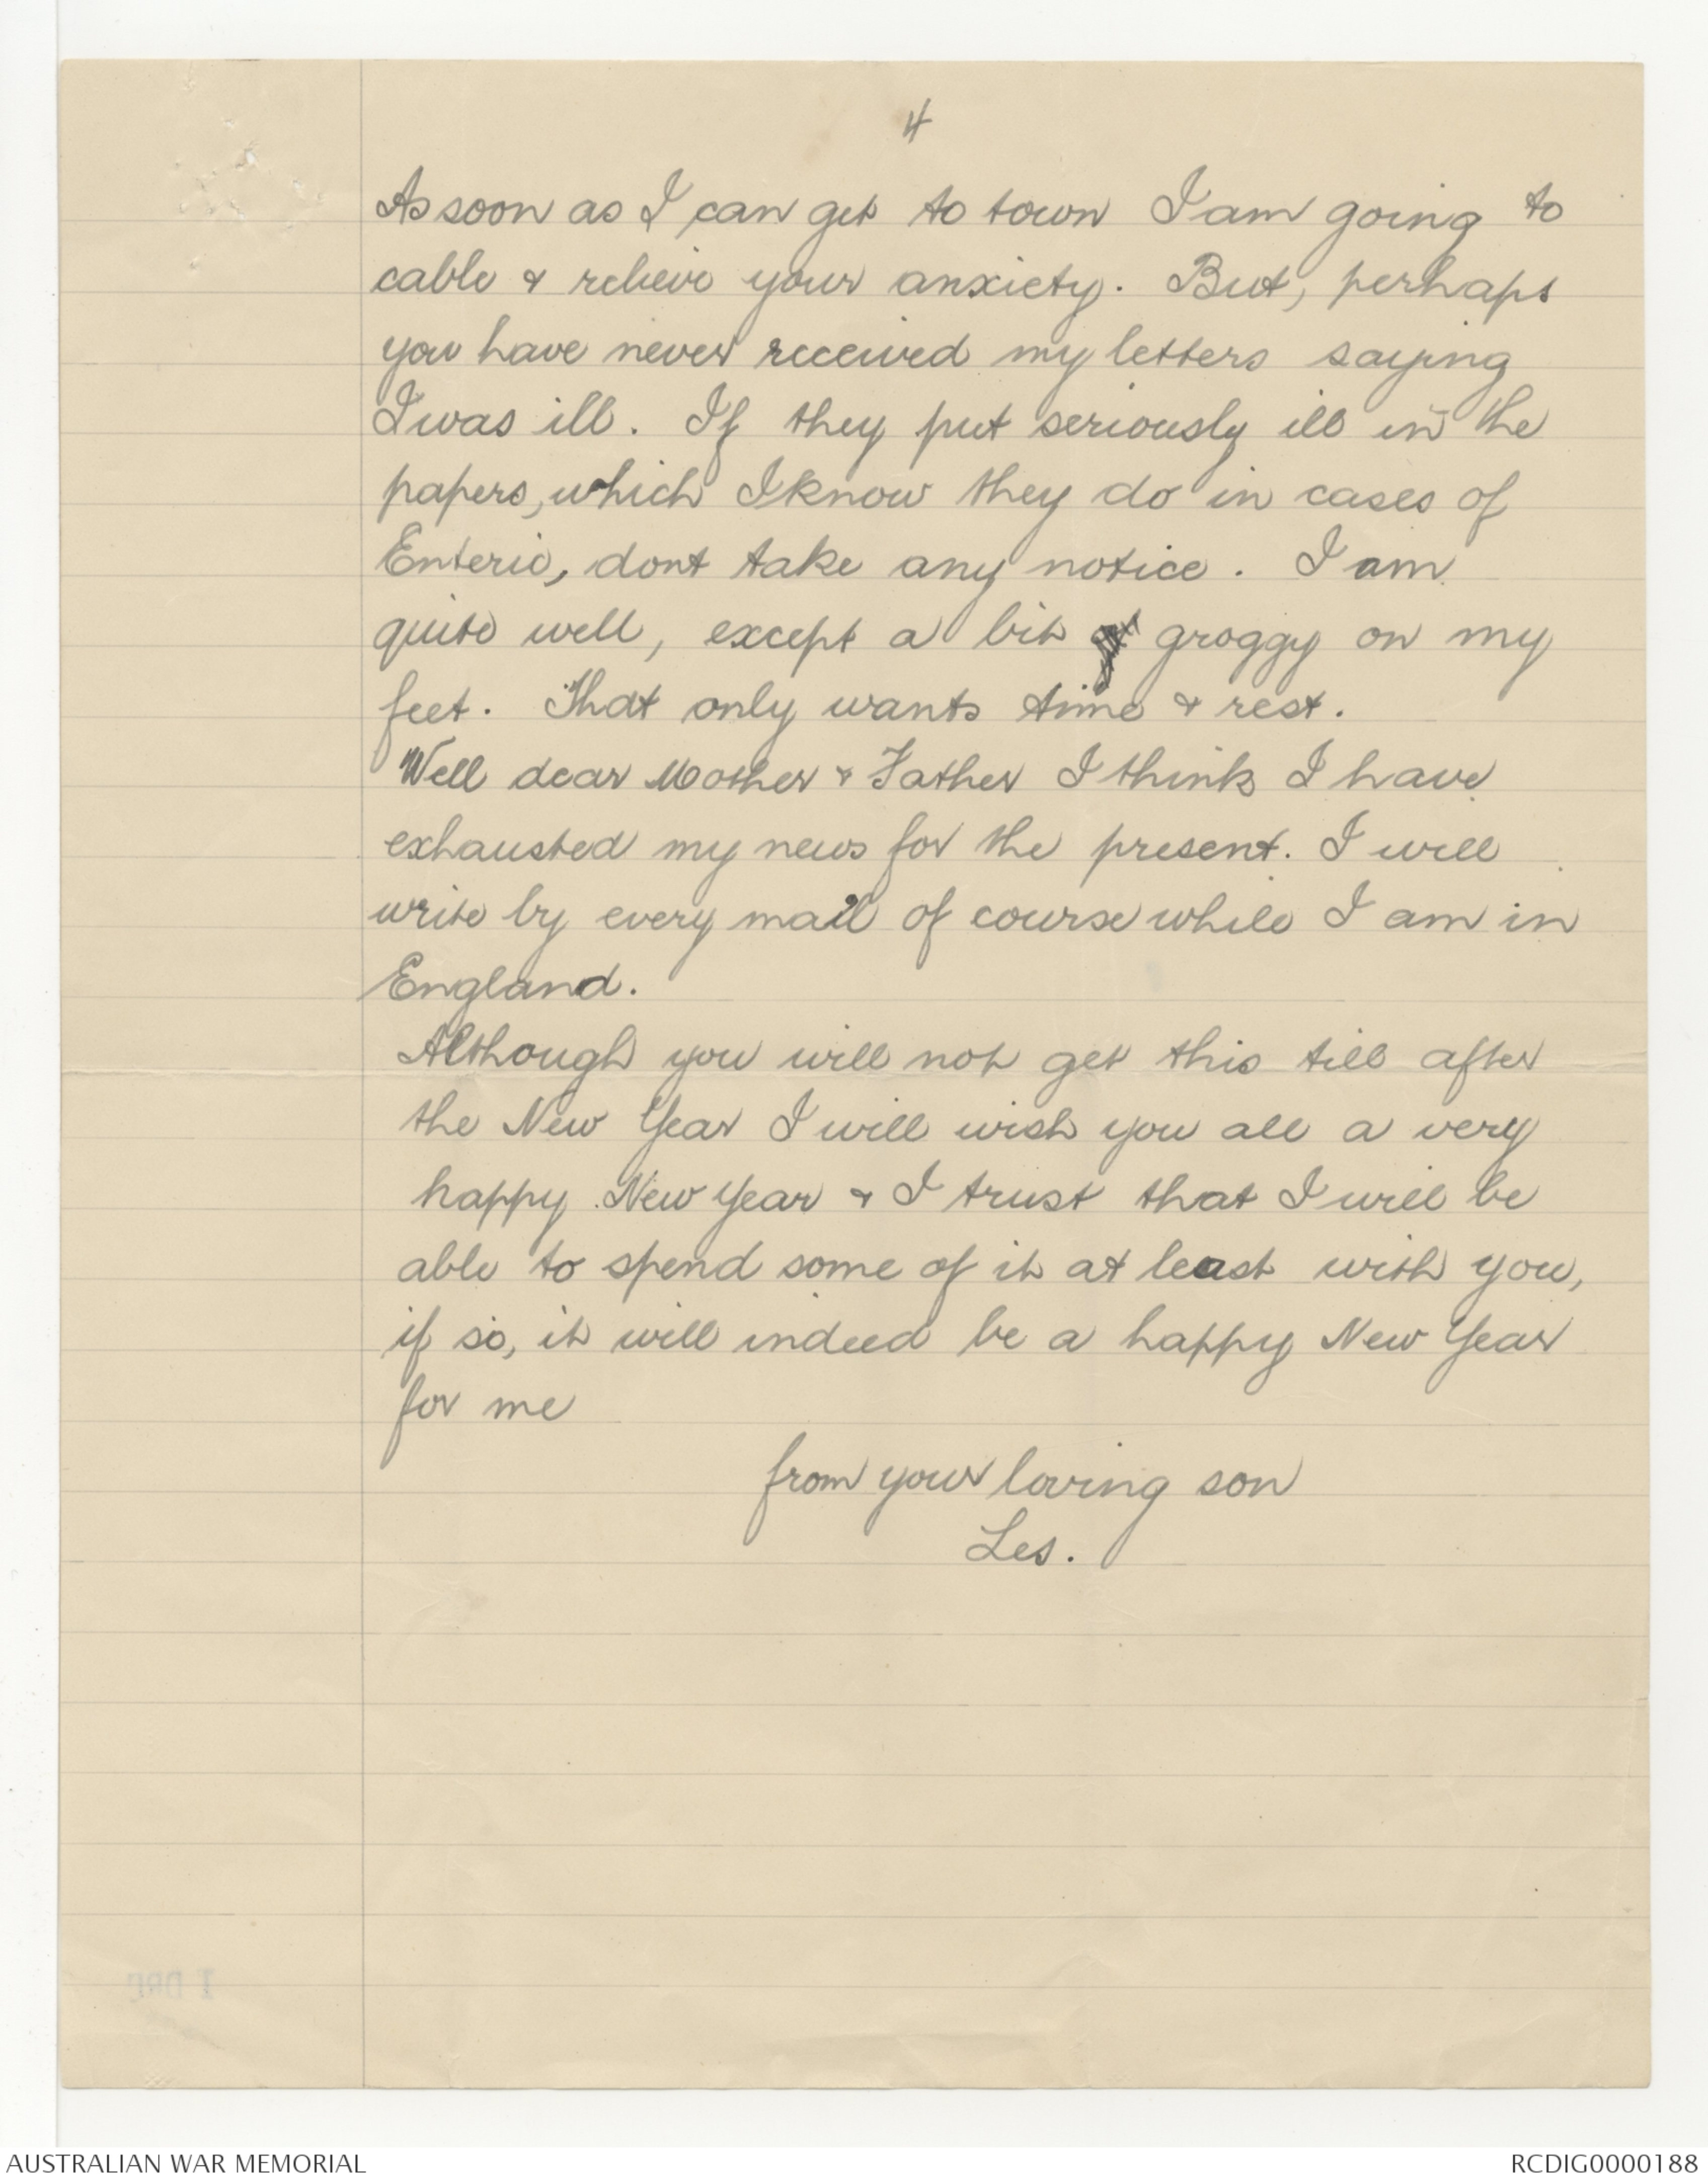 4
As soon as I can get to town I am going to
cable & relieve your anxiety. But, perhaps
you have never received my letters saying
I was ill. If they put seriously ill in the
papers, which I know they do in cases of
Enteric, dont take any notice. I am
quite well, except a bit groggy on my
feet. That only wants time & rest.
Well dear Mother & Father I think I have
exhausted my news for the present. I will
write by every mail of course while I am in
England.
Although you will not get this till after
the New Year I will wish you all a very
happy New Year & I trust that I will be
able to spend some of it at least with you,
if so, it will indeed be a happy New Year
for me
from your loving son
Les.
AUSTRALIAN WAR MEMORIAL
RCDIG0000188